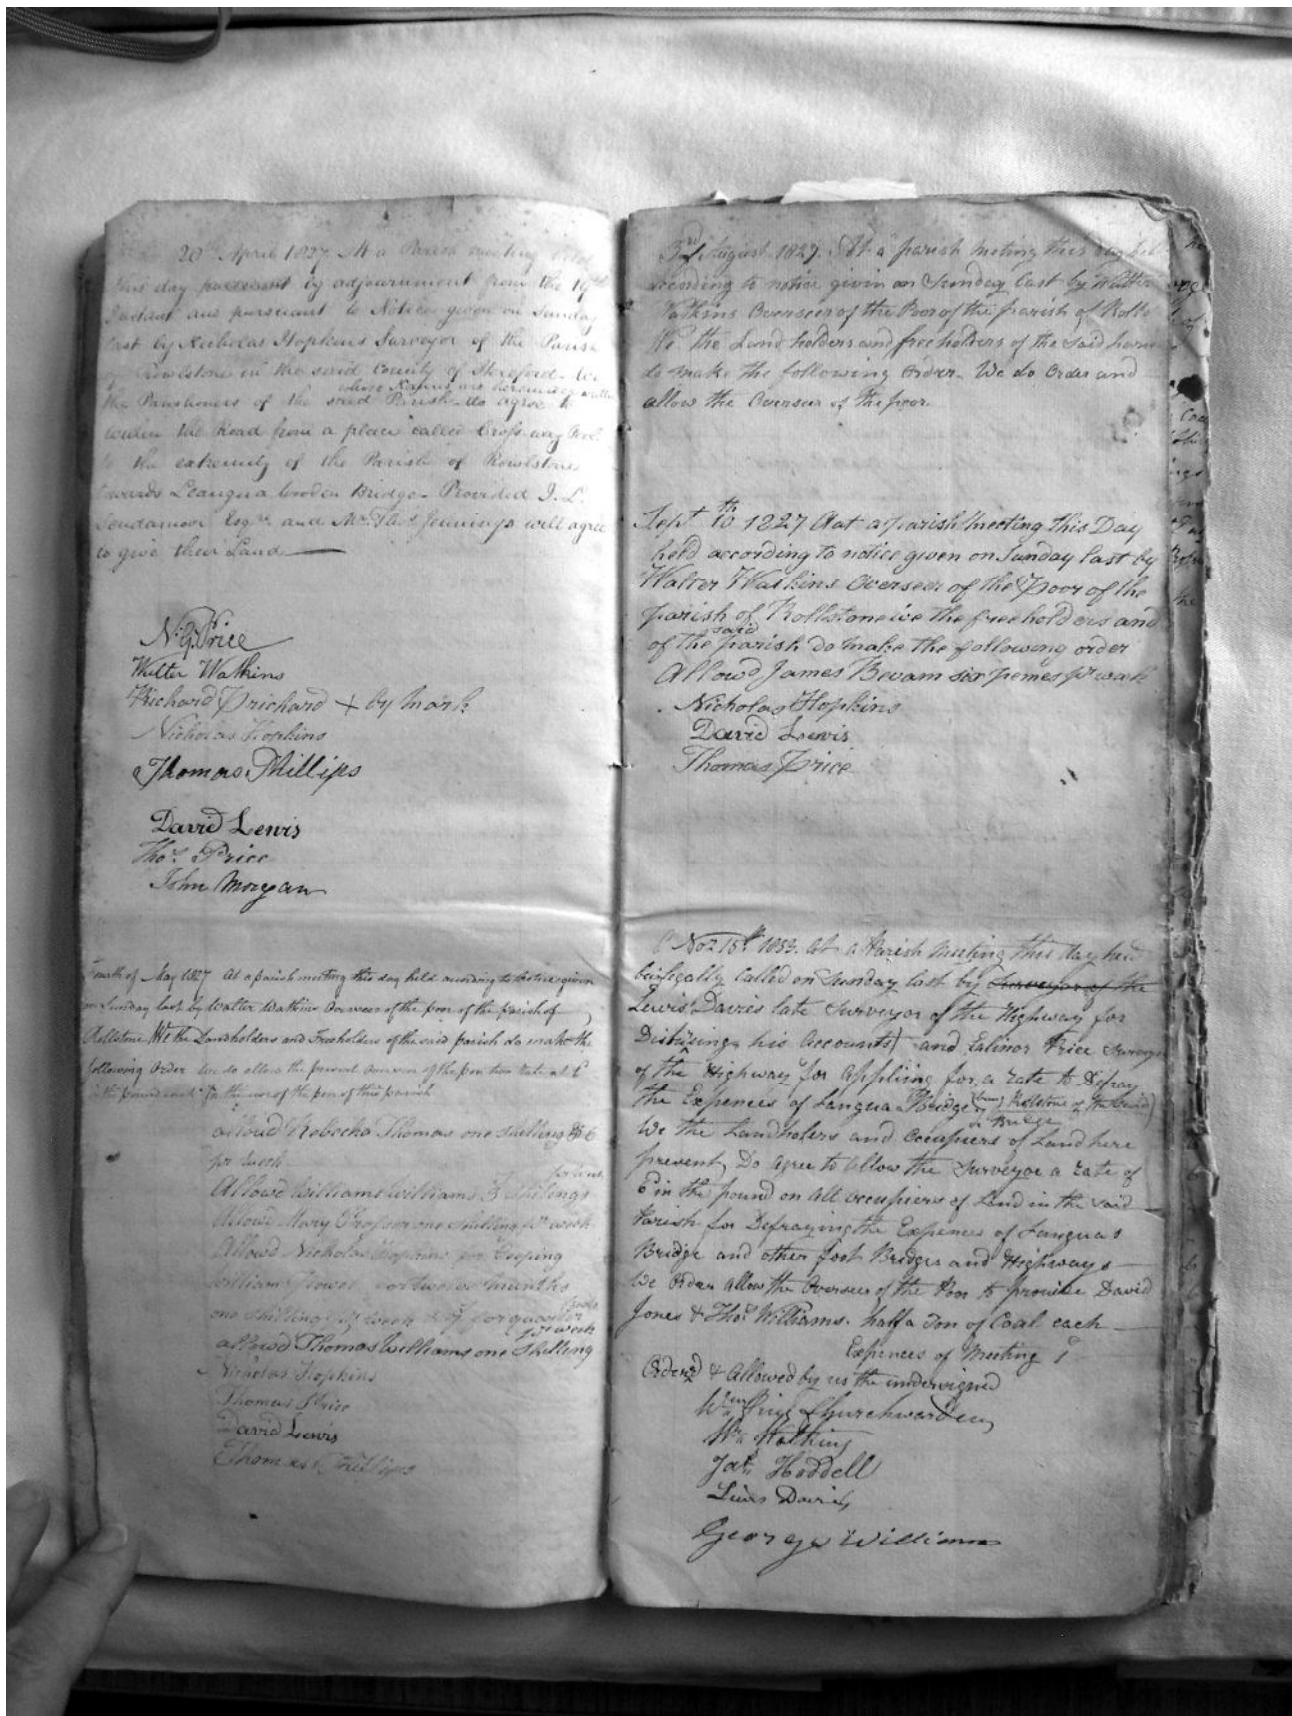 20th April 1827 At a Parish meeting held
this day pursuant by adjournment from the 19th
Instant and pursuant to Notice given on Sunday
last by Nicholas Hopkins Surveyor of the Parish
of Rowlstone in the said County of Hereford. We
whose Names are hereunder
the Parishioners of the said Parish do agree to
widen the Road from a place called Cross way
to the extremity of the Parish of Rowlstone
towards Leangua Wooden Bridge. Provided J. L.
Scudamore Esqre and Mr Thos Jennings will agree
to give their Land
N. G. Price
Walter Watkins
Richard Prichard + by mark
Nicholas Hopkins
Thomas Phillips
David Lewis
Thos Price
John Morgan
Fourth of May 1827 At a parish meeting this day held according to Notice given
on Sunday last by Walter Watkins Overseer of the poor of the parish of
Rollstone We the Landholders and Freeholders of the said parish do make the
following Order We do allow the present Overseer of the poor
in the pound for the use of the poor of this parish
alloud Rebecka Thomas one shilling & 6
per week
Allowd Williams Williams 3 Shilings
Allowd Mary Prosser one shilling pr week
Allowd Nicholas Hopkins for keeping
William for twelve months
one shilling
pr week
allowd Thomas Williams one Shilling
Nicholas Hopkins
Thomas Price
David Lewis
Thomas Phillips
3rd August 1827. At a parish meting this day
according to notice givin on Sunday last by Walter
Watkins Overseer of the Poor of the parish of
We the Land holders and free holders of the said
do make the following Order. We do Order and
allow the Overseer of the poor.
Sept 10th 1827 Aat a parish meeting this Day
held according to notice given on Sunday last by
Walter Watkins Overseer of the Poor of the
parish of Rollstone we the free holders and
said
of the parish do make the following order
Allowd James Bevam six pemes pr week
Nicholas Hopkins
David Lewis
Thomas Price
Nov 15th 1833. At a Parish Meeting this day held
Legally Called on Sunday last by Surveyor of the
Lewis Davies late Surveyor of the Highway for
his Accounts) and Ealinor Price Surveyor
of the Highway for Appliing for a rate to Defray
the Expences of Langua Bridge
Bridge
We the Landholers and Occupiers of Land here
present, Do agree to allow the Surveyor a rate of
6d in the pound on all occupiers of Land in the said
Parish for Defraying the Expences of Langua s
Bridge and other foot Bridges and Highways
We Order Allow the Overseer of the Poor to provide David
Jones & Thos Williams. half a Ton of Coal each
Expences of Meeting
Orderd & Allowed by us the undersigned
Wm Price Churchwarden
Wm Watkins
Jas Hoddell
Lewis Davies
George Williams